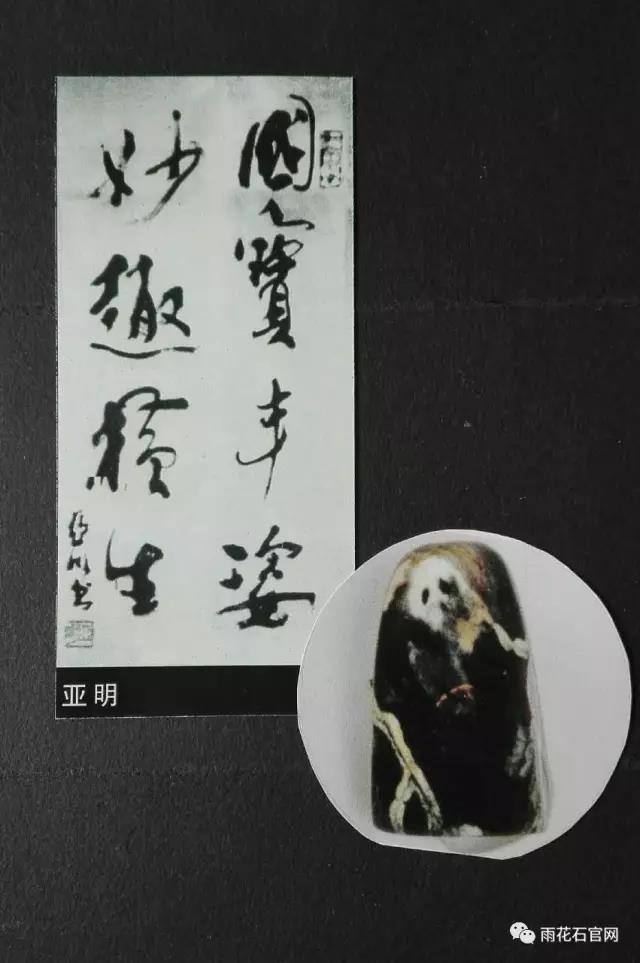 國寶丰姿
妙趣橫生
亞明书
亚明
雨花石官网